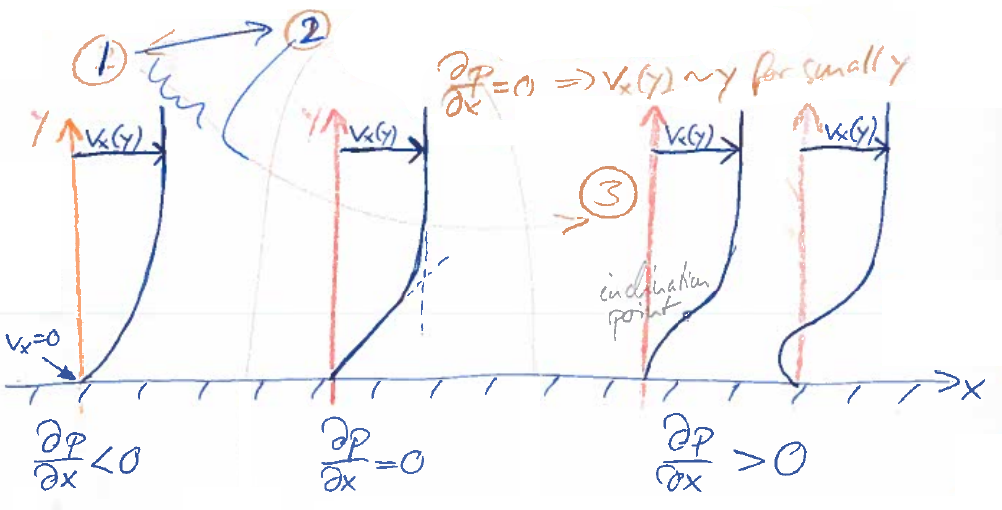 1
2
∂p/∂x = 0 ⇒ Vx(y) ~ y for small y
y
Vx(y)
y
Vx(y)
Vx(y)
Vx(y)
3
inclination
point
Vx=0
x
∂p/∂x < 0
∂p/∂x = 0
∂p/∂x > 0